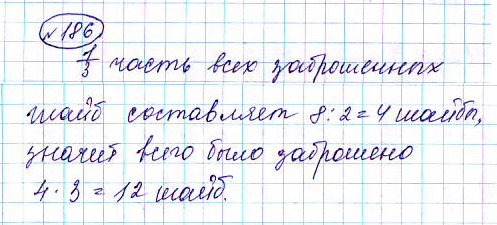 №186
1/3 часть всех заброшенных
шайб составляет 8:2=4 шайбы,
значит всего было заброшено
4·3=12 шайб.